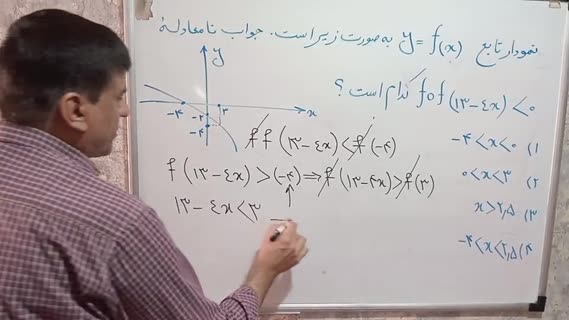 نمودار تابع y = f(x) به صورت زیر است. جواب نامعادلهٔ
fof(۱۳-٤x)<۰ کدام است؟
y
-۴ ۳ x
-۲
-۴
۱) -۴<x<۰
۲) ۰<x<۳
۳) x>۲٫۵
۴) -۴<x<۲٫۵
ff(۱۳-٤x)<f(-۴)
f(۱۳-٤x)>(-۴)⇒f(۱۳-۴x)>f(۳)
۱۳-٤x<۳